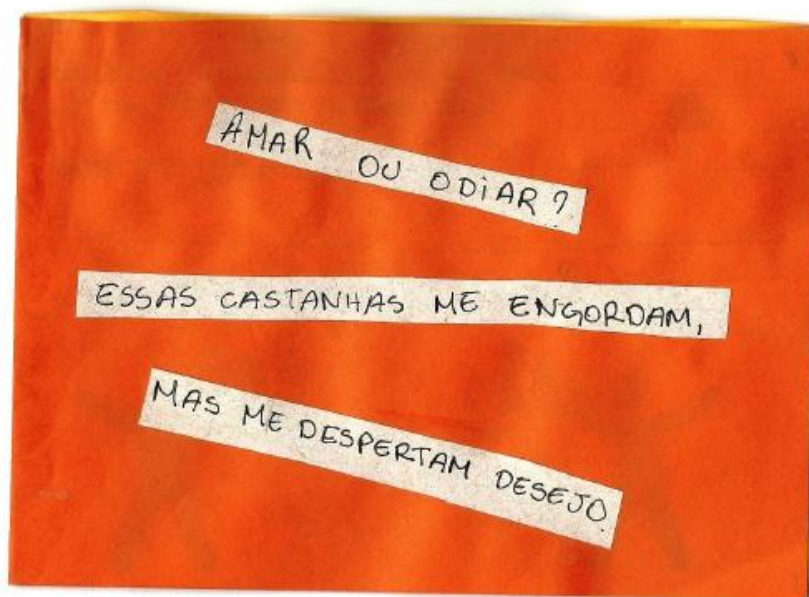 AMAR OU ODIAR?
ESSAS CASTANHAS ME ENGORDAM,
MAS ME DESPERTAM DESEJO